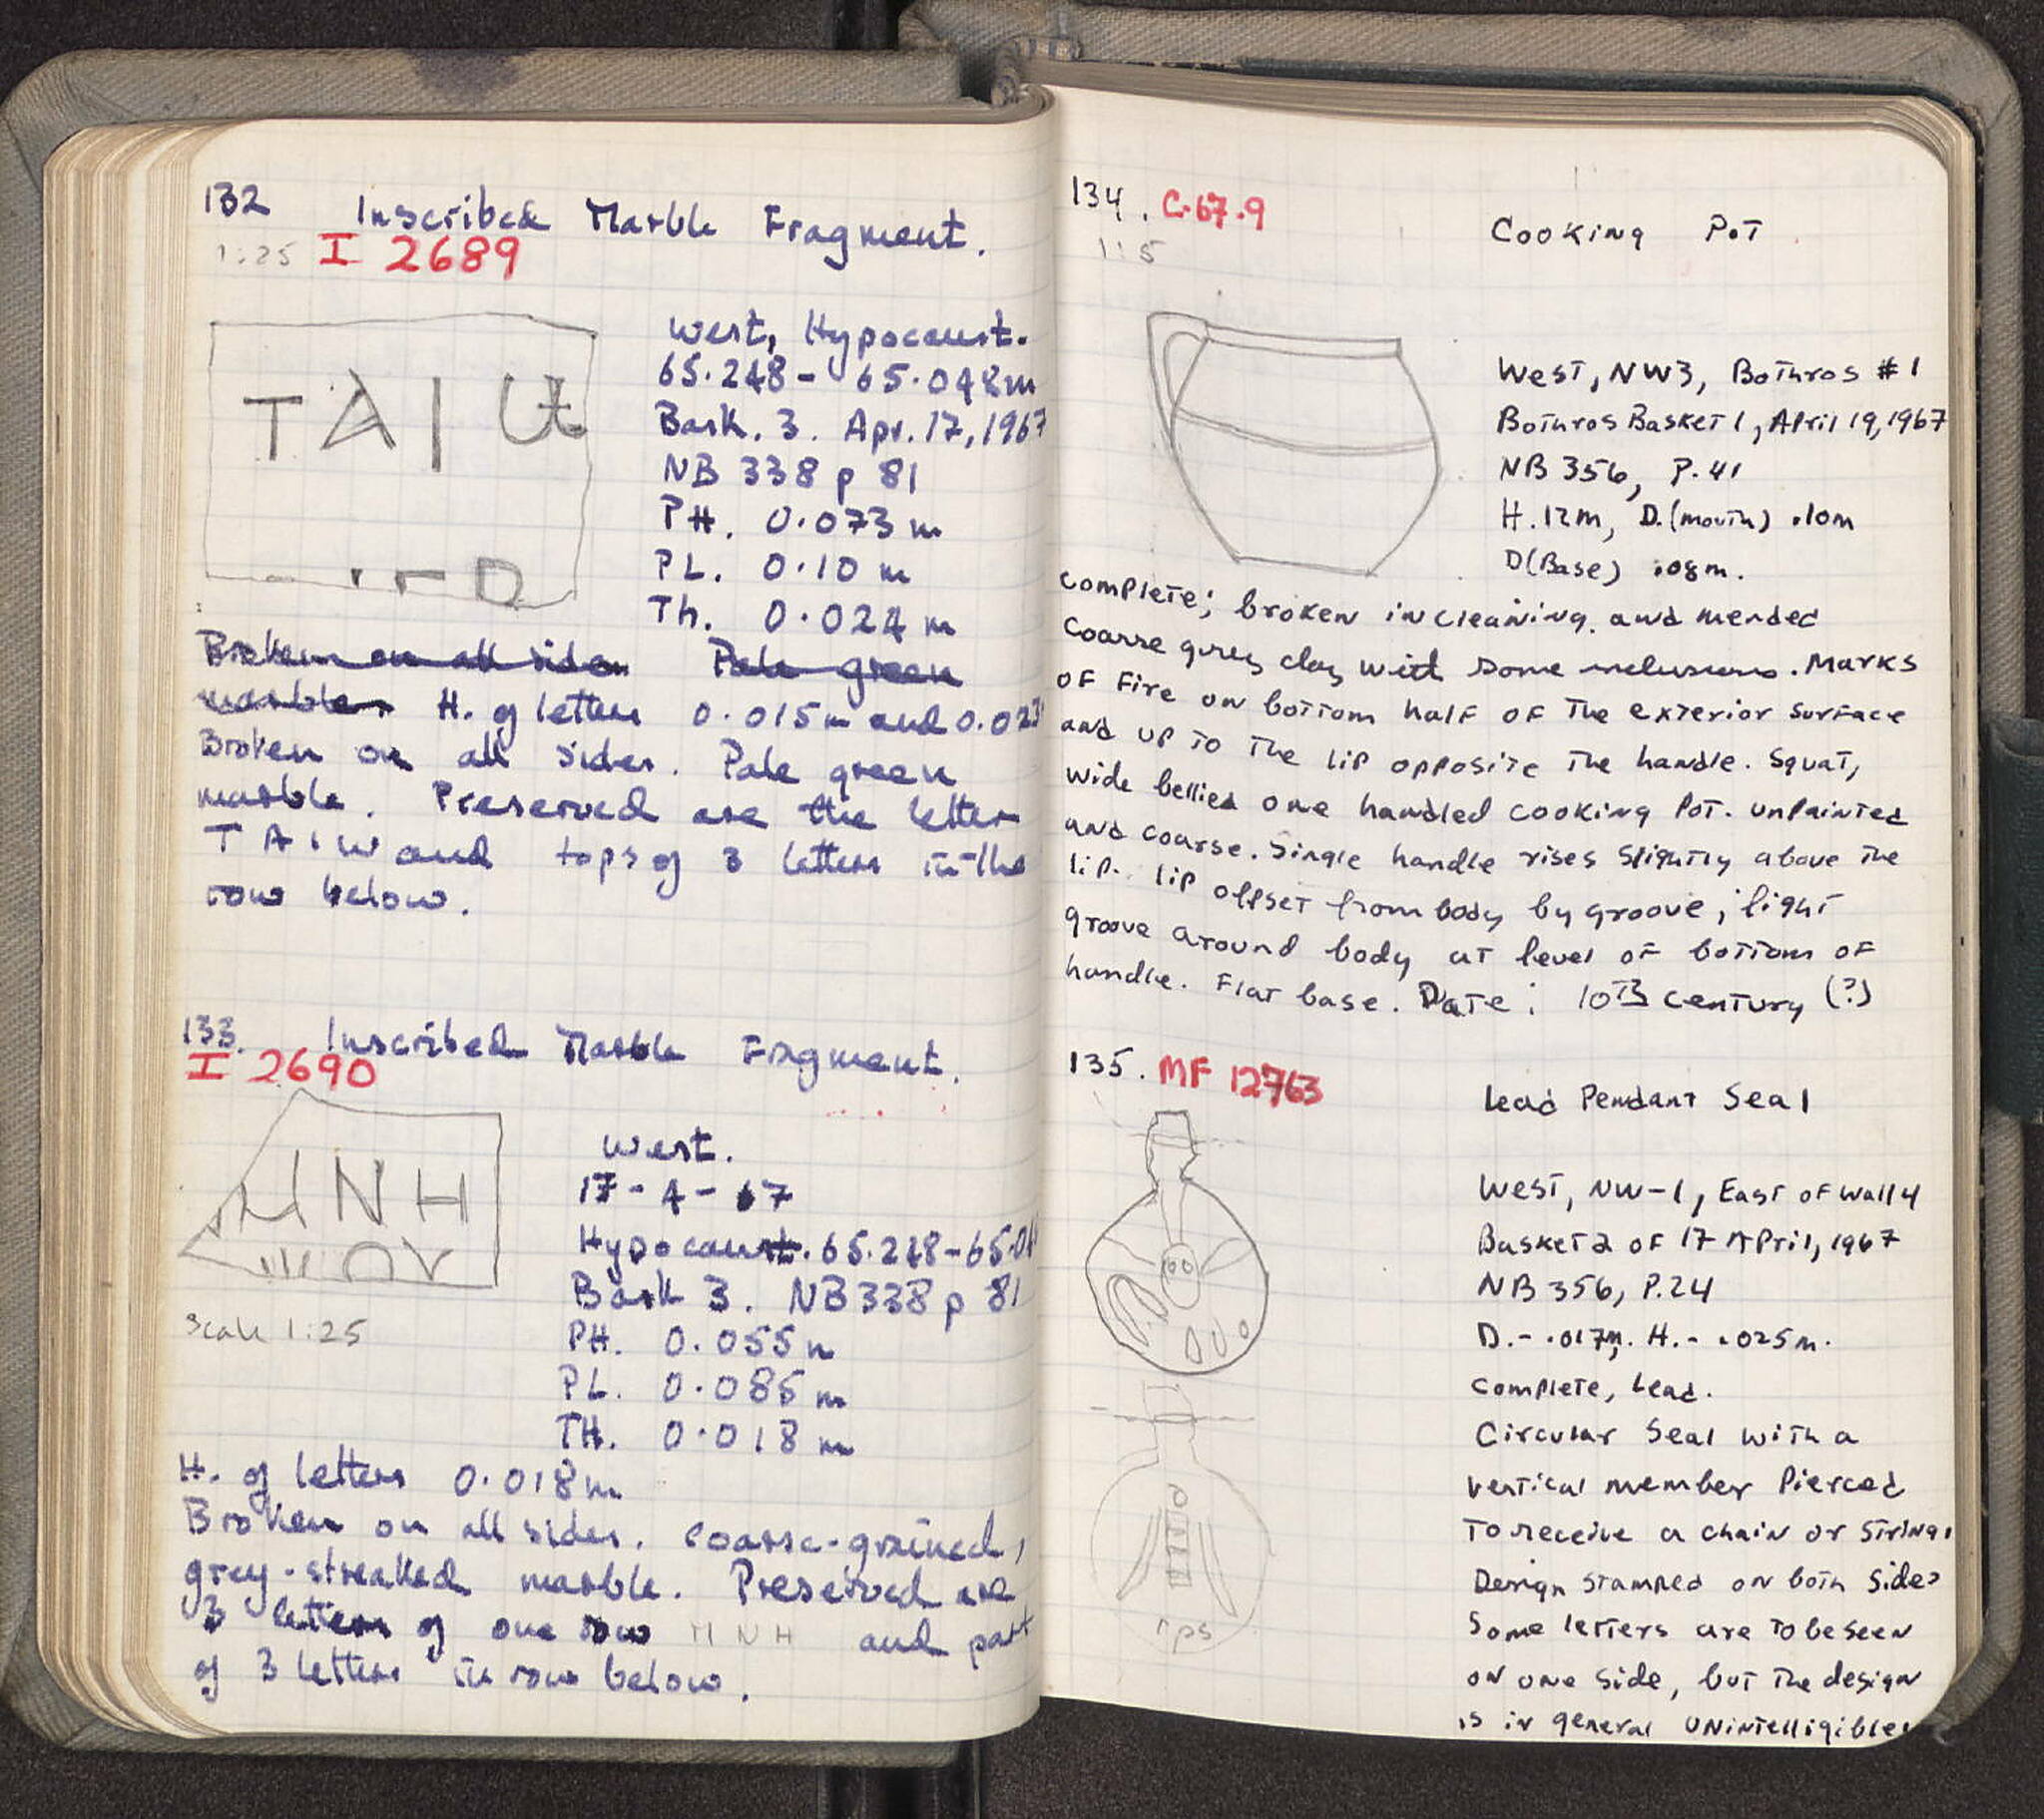 132 Inscribed Marble Fragment.
1:25 I 2689
TAIW
West, Hypocaust.
65.248 - 65.048m
Bask. 3. Apr. 17, 1967
NB 338 p 81
PH. 0.073 m
PL. 0.10 m
Th. 0.024 m
Broken on all sides Pale green
marble. H. of letters 0.015m and 0.02
Broken on all sides. Pale green
marble. Preserved are the letters
T A I W and tops of 3 letters in the
row below.
133. Inscribed Marble Fragment.
I 2690
NH
Scale 1:25
West.
17-4-67
Hypocaust. 65.248-65.0
Bask 3. NB 338 p 81
PH. 0.055 m
PL. 0.085 m
TH. 0.018 m
H. of letters 0.018m
Broken on all sides. Coarse-grained,
grey-streaked marble. Preserved are
3 letters of one row MNH and part
of 3 letters in row below.
134. C.67.9 Cooking Pot
1:5
West, NW3, Bothros #1
Bothros Basket 1, April 19, 1967
NB 356, P. 41
H .12m, D. (mouth) .10m
D (Base) .08m.
complete; broken in cleaning and mended
coarse grey clay with some inclusions. Marks
of fire on bottom half of the exterior surface
and up to the lip opposite the handle. Squat,
wide bellied one handled cooking pot. unpainted
and coarse. Single handle rises slightly above the
lip. lip offset from body by groove; light
groove around body at level of bottom of
handle. Flat base. Date: 10th century (?)
135. MF 12763
Lead Pendant Seal
West, NW-1, East of wall 4
Basket 2 of 17 April, 1967
NB 356, P. 24
D. - .017m. H. - .025m.
complete, Lead.
Circular Seal with a
vertical member pierced
To receive a chain or string.
Design stamped on both sides
Some letters are to be seen
on one side, but the design
is in general unintelligible.